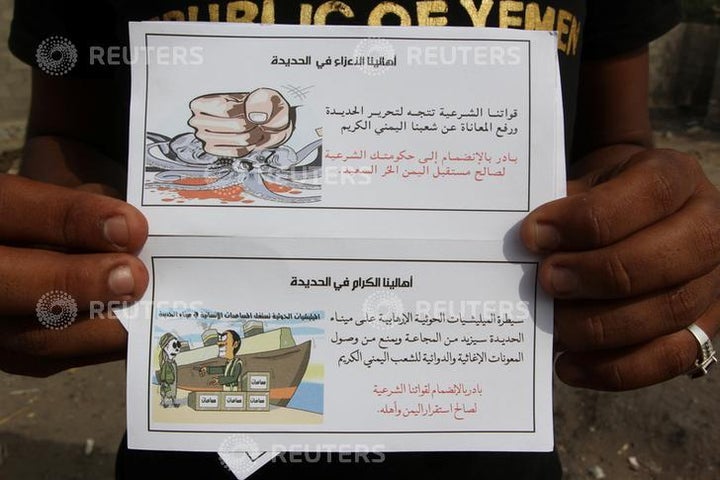 REPUBLIC OF YEMEN
REUTERS
أهالينا الأعزاء في الحديدة
قواتنا الشرعية تتجه لتحرير الحديدة
ورفع المعاناة عن شعبنا اليمني الكريم
بادر بالإنضمام إلى حكومتك الشرعية
لصالح مستقبل اليمن الحر السعيد.
REUTERS
أهالينا الكرام في الحديدة
المليشيات الحوثية تستغل المساعدات الإنسانية في ميناء الحديدة
سيطرة الميليشيات الحوثية الإرهابية على ميناء
الحديدة سيزيد من المجاعة ويمنع من وصول
المعونات الإغاثية والدوائية للشعب اليمني الكريم
مساعدات
مساعدات مساعدات مساعدات
بادر بالإنضمام لقواتنا الشرعية
لصالح استقرار اليمن وأهله.
REUTERS
REUTERS
REUTERS
REUTERS